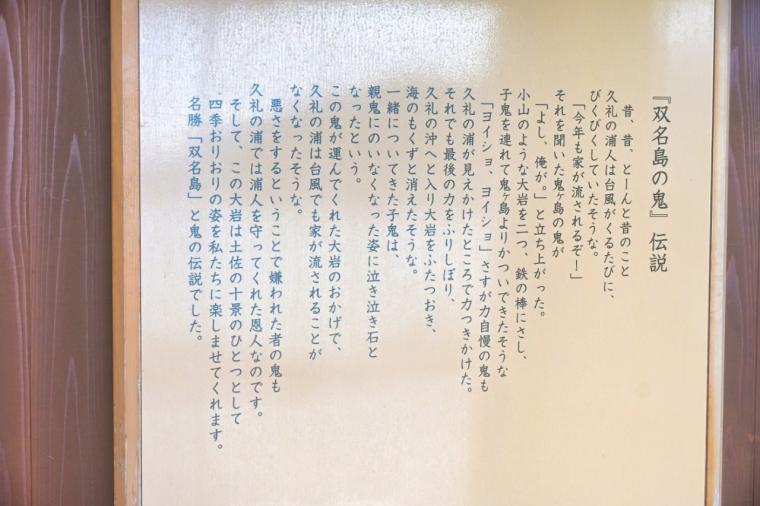 『双名島の鬼』伝説
昔、昔、とーんと昔のこと
久礼の浦人は台風がくるたびに、
びくびくしていたそうな。
「今年も家が流されるぞー」
それを聞いた鬼ヶ島の鬼が
「よし、俺が。」と立ち上がった。
小山のような大岩を二つ、鉄の棒にさし、
子鬼を連れて鬼ヶ島よりかついできたそうな
「ヨイショ、ヨイショ」さすが力自慢の鬼も
久礼の浦が見えかけたところで力つきかけた。
それでも最後の力をふりしぼり、
久礼の沖へと入り大岩をふたつおき、
海のもくずと消えたそうな。
一緒についてきた子鬼は、
親鬼にのいなくなった姿に泣き泣き石と
なったという。
この鬼が運んでくれた大岩のおかげで、
久礼の浦は台風でも家が流されることが
なくなったそうな。
悪さをするということで嫌われた者の鬼も
久礼の浦では浦人を守ってくれた恩人なのです。
そして、この大岩は土佐の十景のひとつとして
四季おりおりの姿を私たちに楽しませてくれます。
名勝「双名島」と鬼の伝説でした。